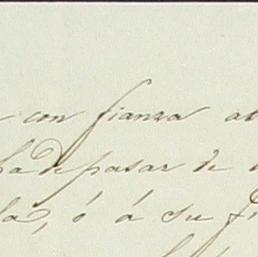 con fianza
ha de pasar de
la, ó á su